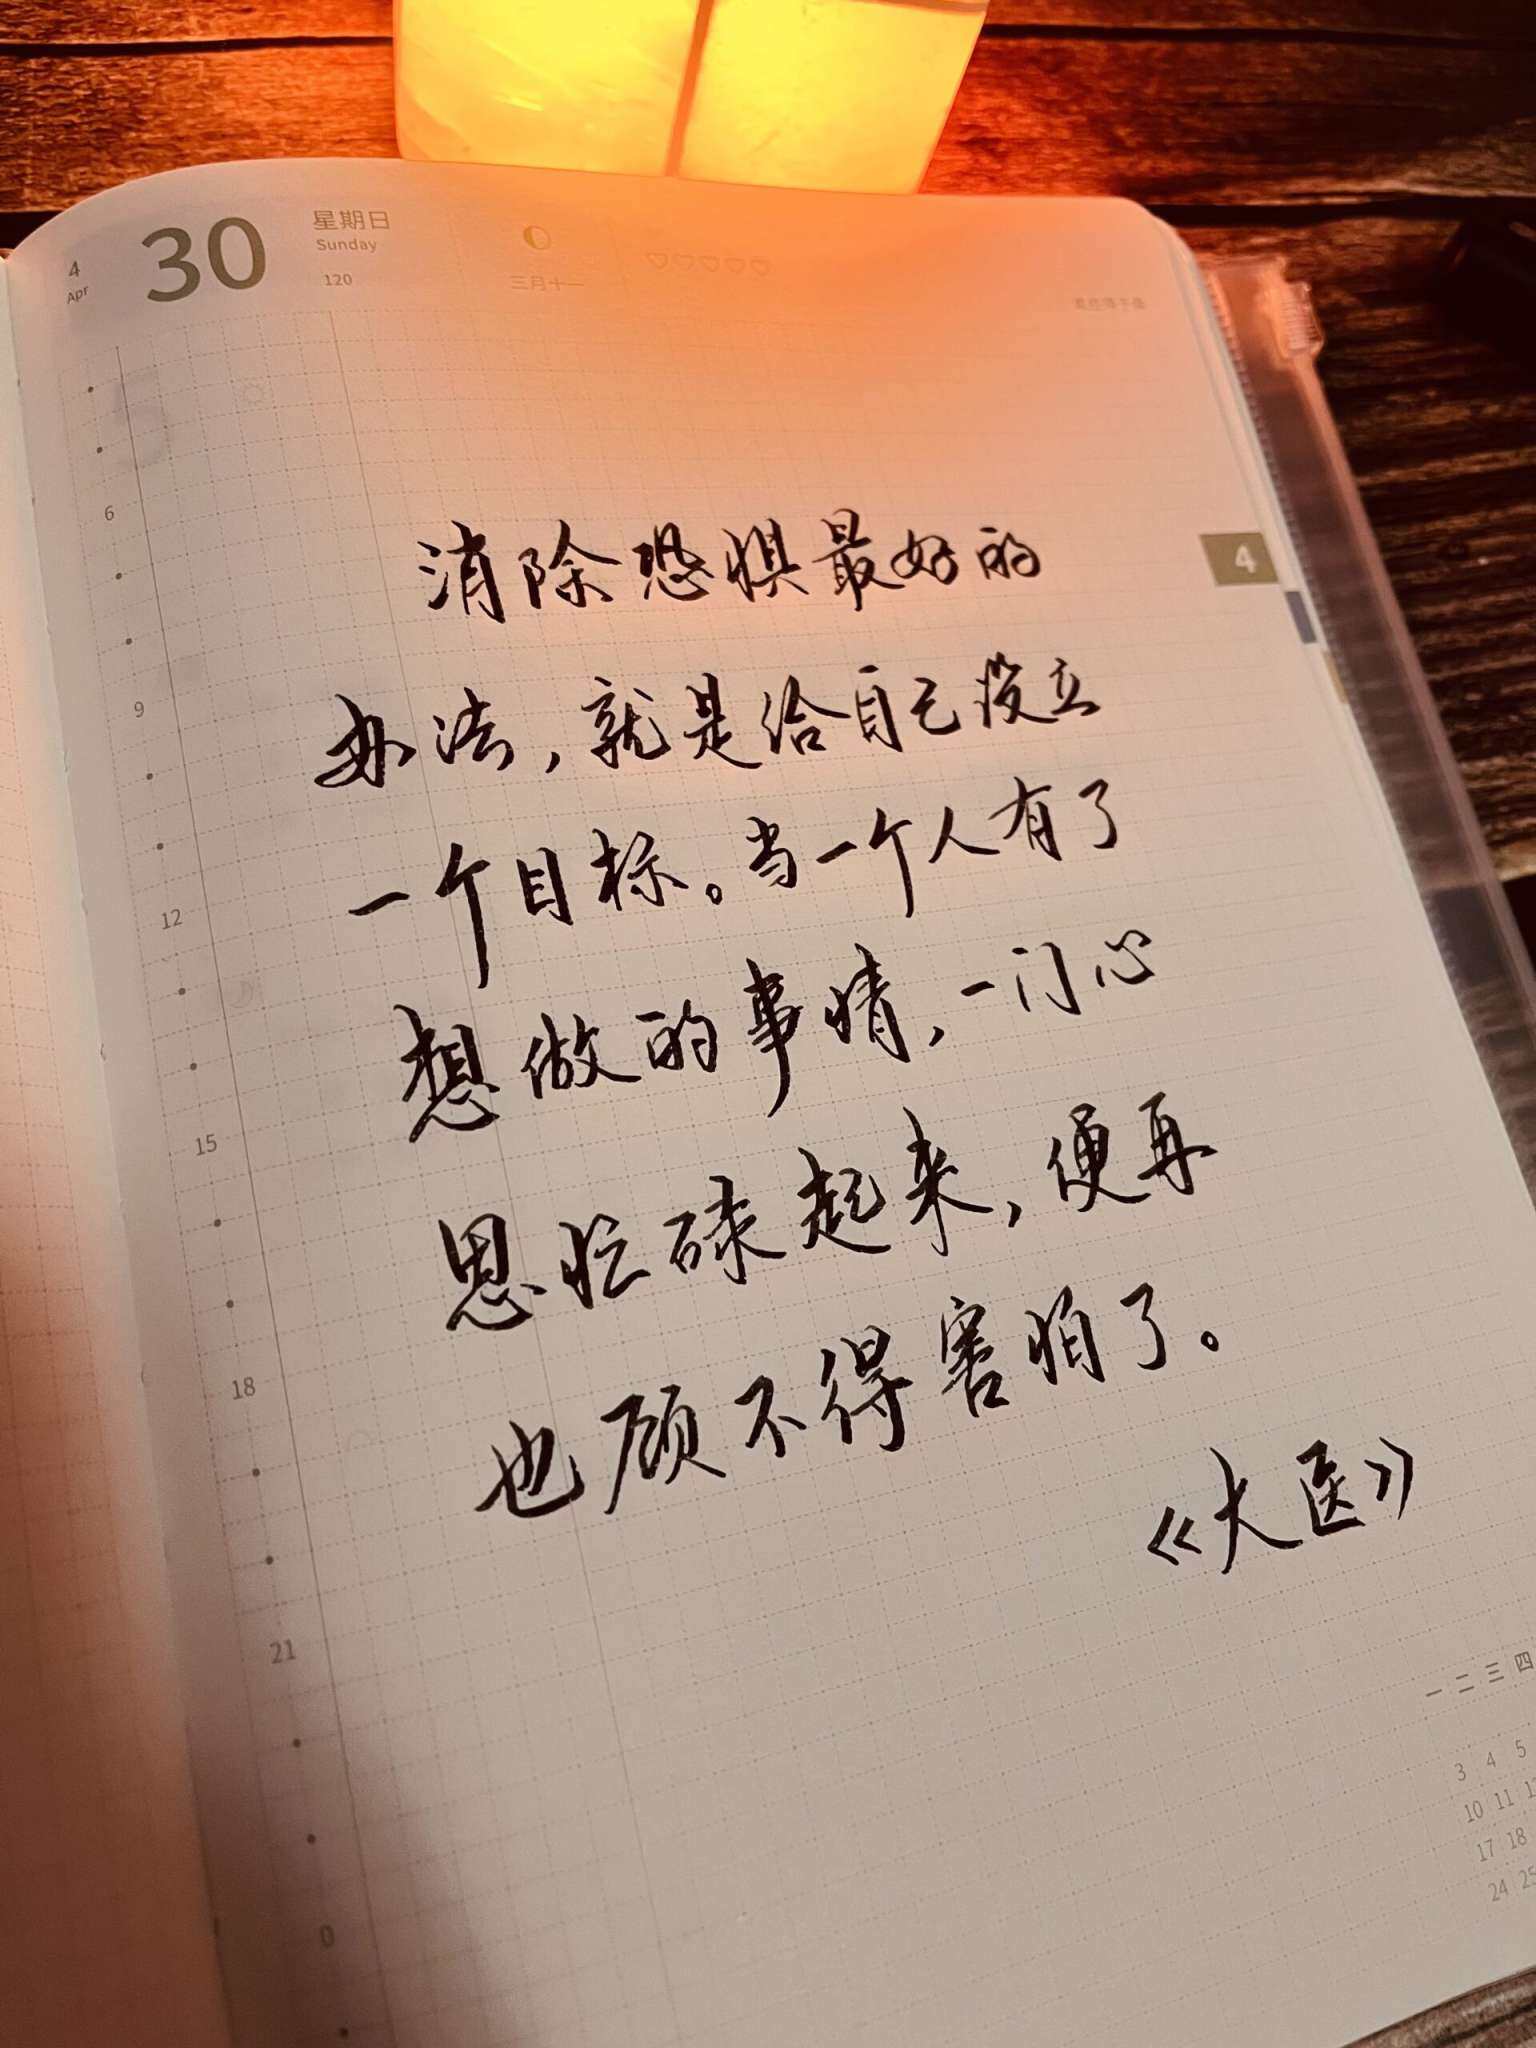 4
Apr
30
星期日
Sunday
120
三月十一
4
消除恐惧最好的
办法，就是给自己设立
一个目标。当一个人有了
想做的事情，一门心
思忙碌起来，便再
也顾不得害怕了。
《大医》
6
9
12
15
18
21
0
一 二 三 四
3 4 5
10 11
17 18
24 25